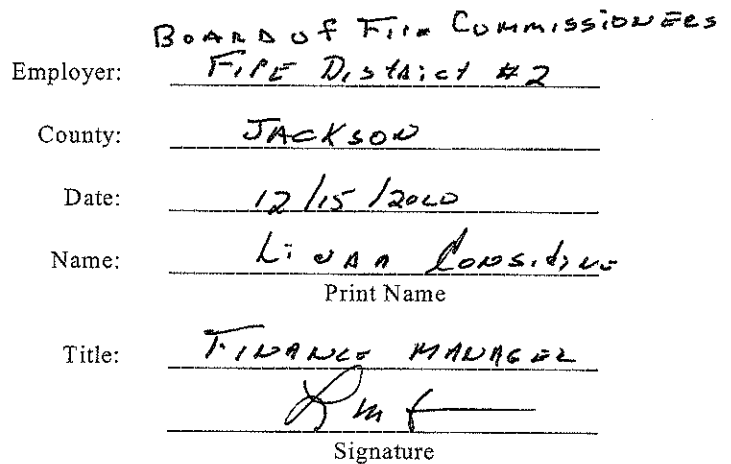 Board of Fire Commissioners
Employer: Fire District #2
County: JACKSON
Date: 12/15/2020
Name: Linda Considine
Print Name
Title: FINANCE MANAGER
Signature